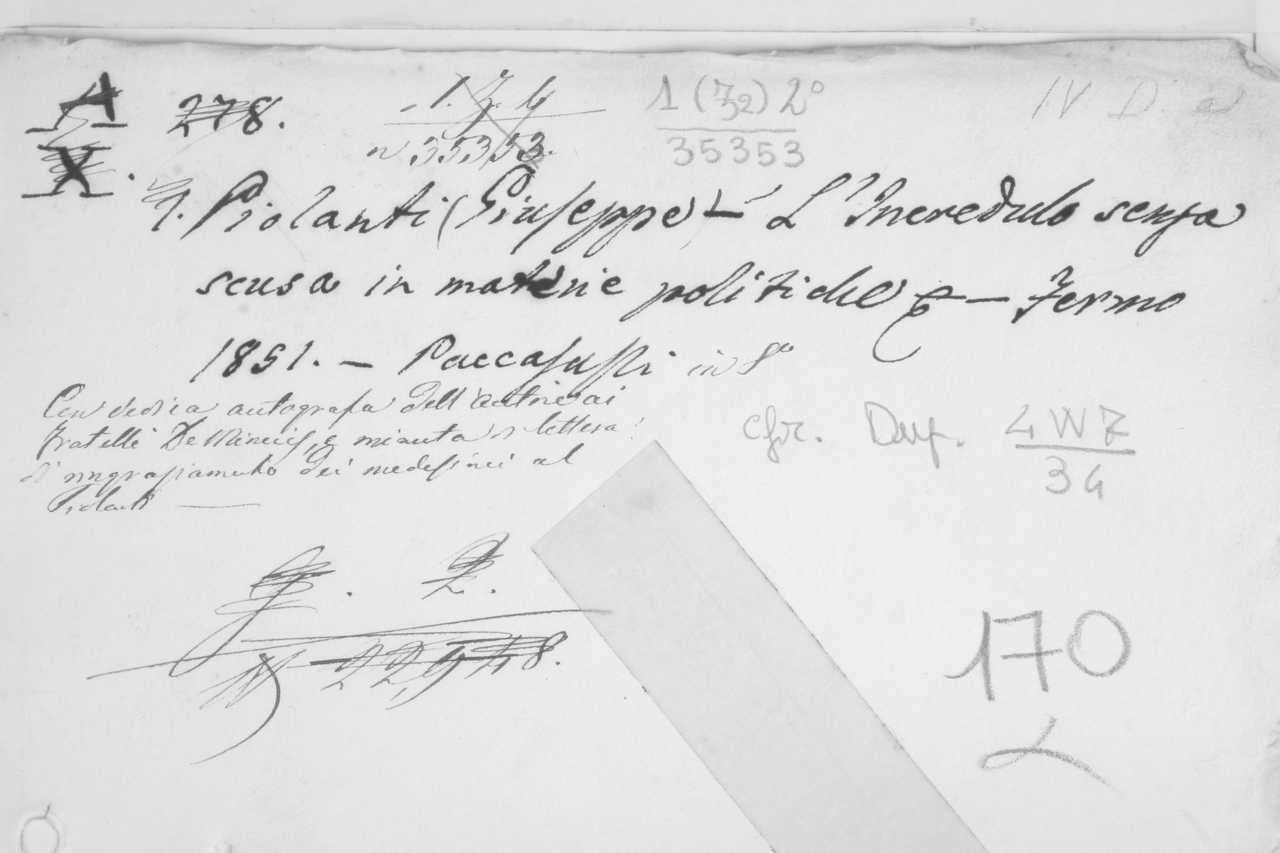 A
X.
278.
1. 7. 4
n 35353.
1 (72) 2°
35353
IV D. a
1. Piolanti (Giuseppe) — L'Incredulo senza
scusa in materie politiche & — Fermo
1851. — Paccasassi in 8°
Con dedica autografa dell'autore ai
fratelli De Minicis, e minuta di lettera
di ringraziamento dei medesimi al
Piolanti —
cfr. Dup. 4 W 7
34
2.
N 22,948.
170